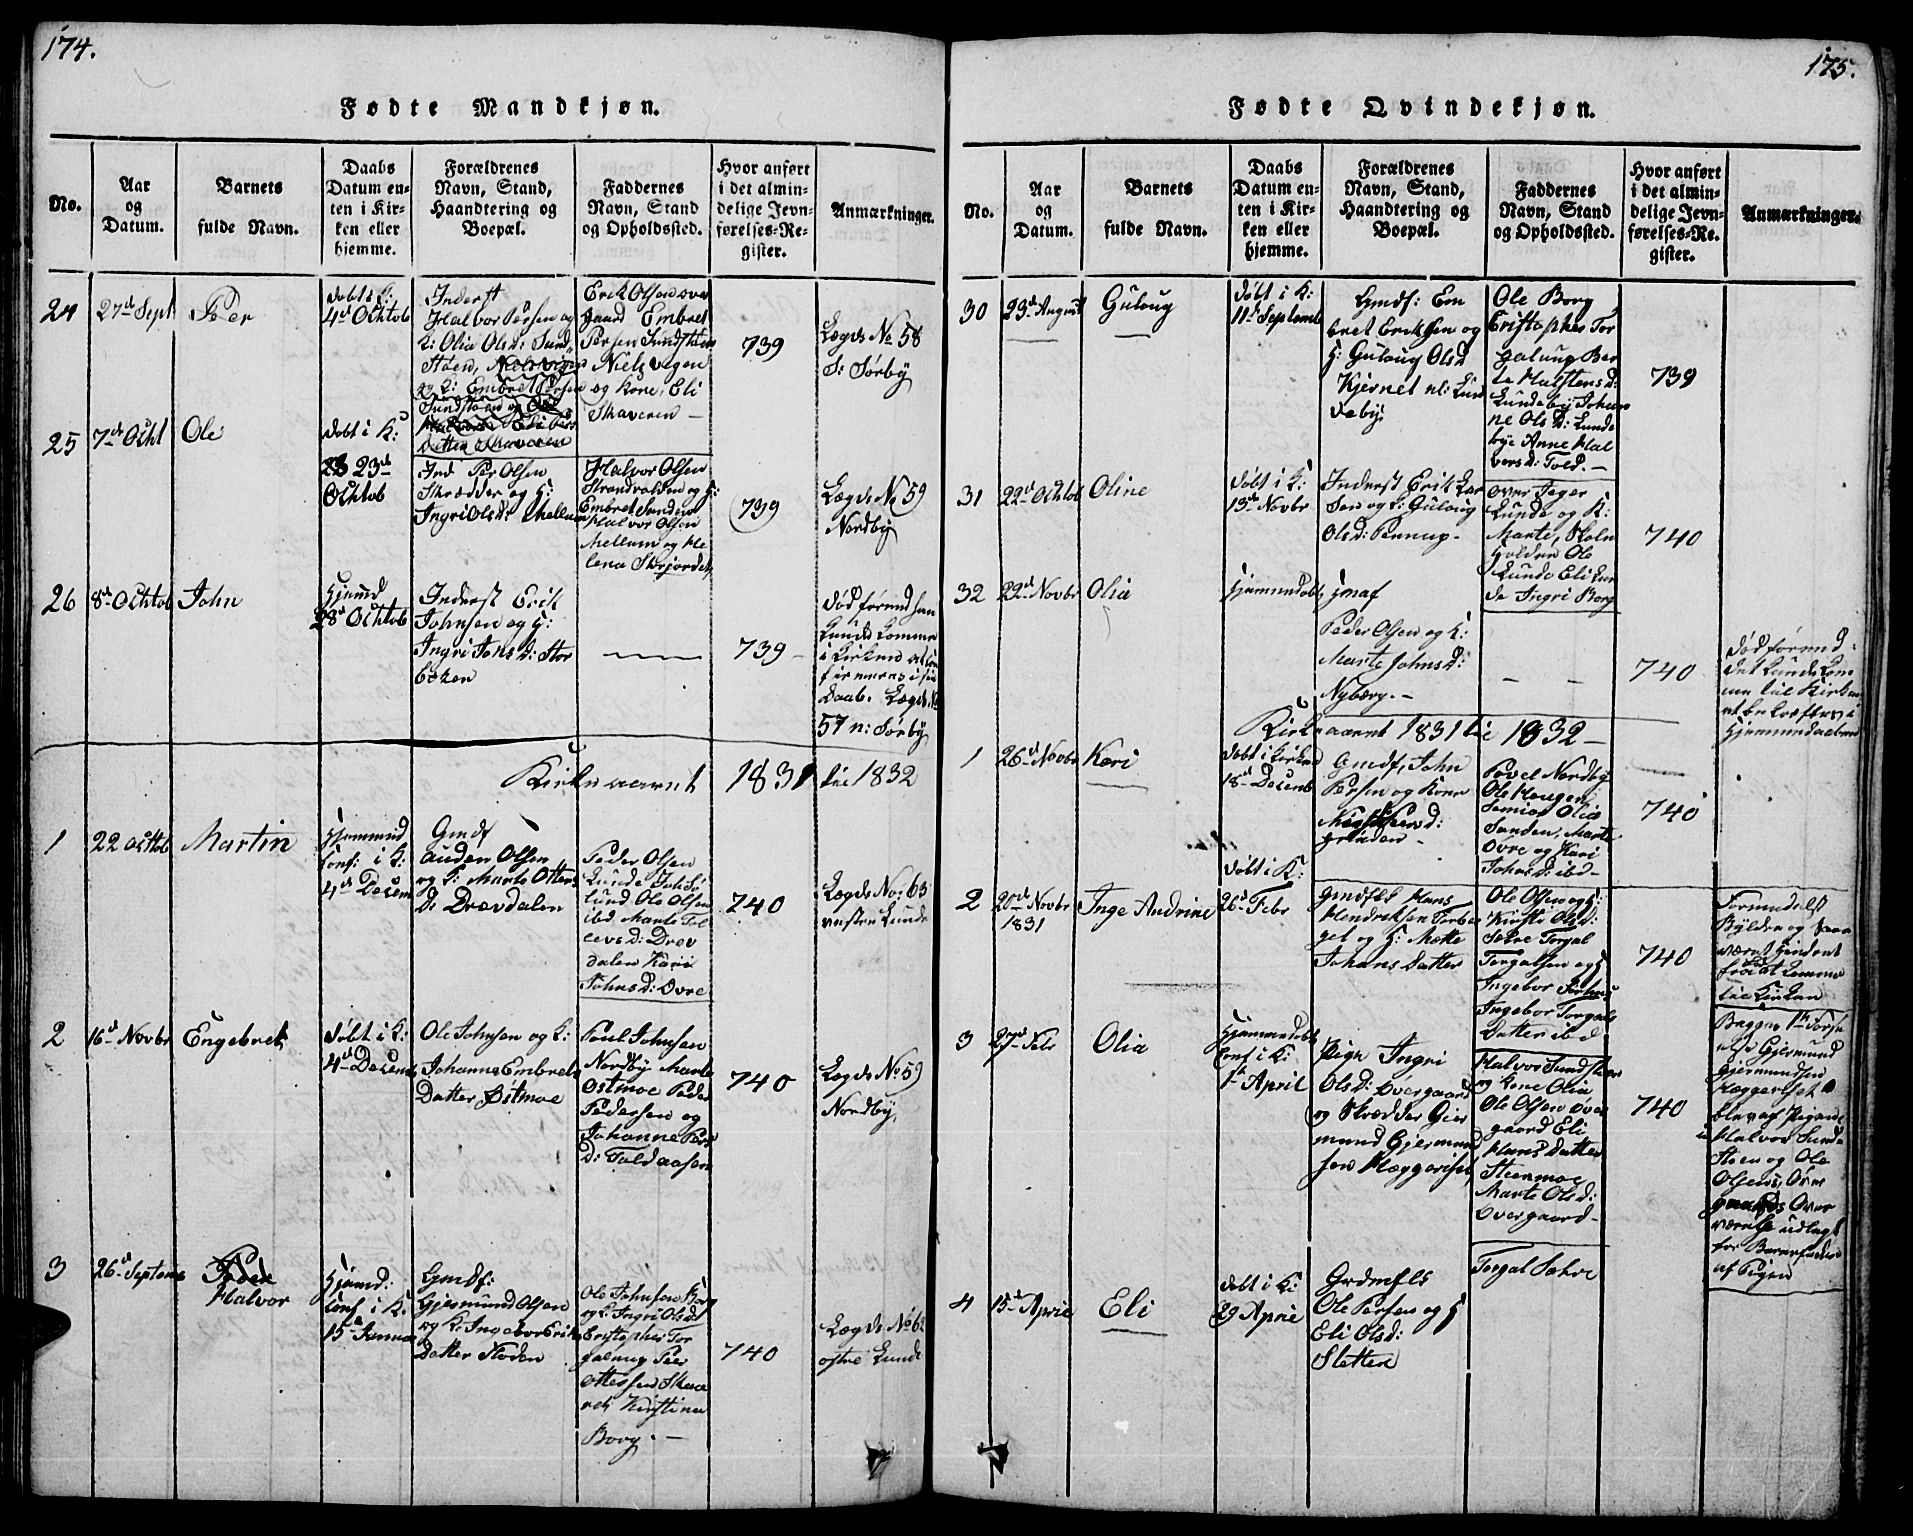 174.
Fødte Mandkjøn.
No.
Aar
og
Datum.
Barnets
fulde Navn.
Daabs
Datum en-
ten i Kir-
ken eller
hjemme.
Forældrenes
Navn, Stand,
Haandtering og
Boepæl.
Faddernes
Navn, Stand
og Opholdssted.
Hvor anført
i det almin-
delige Jevn-
førelses-Re-
gister.
Anmærkninger.
24
27de Sept
Peder
døbt i K:
4de Ochtob
Inderst
Halvor Persen og
K: Olia Olsd: Sund
Støen,
Erik Olsen over
gaard Embret
Persen Sundstøen
Niels vegen
og kone, Eli
Skaveren —
739
Lægds No 58
S: Sørby
25
7de Ocht
Ole
døbt i K:
23de
Ochtob
Ind Per Olsen
Skrædder og K:
Ingri Olsd: Mellum
Halvor Olsen
Strandvolden og K:
Embret Sunden
Halvor Olsen
Mellum og He
lena Skjerdet
739
Lægds No 59
Nordby
26
8de Ochtob
John
Hjemmd
28de Ochtob
Inderst Erik
Johnsen og K:
Ingri Jons D: Stor
beken
739
død førend han
kunde komme
i Kirken at con
firmeres i sin
Daab. Lægds No
57 n: Sørby
Kirkeaaret 1831 til 1832
1
22 Ochtob
Martin
Hjemmed
conf: i K:
4de Decem
Gmdf
Auden Olsen
og K: Marte Otters
D: Drevdalen
Peder Olsen
Lunde Joh
lund Ole Olsen
ibd Marte Tol
levsd: Drev
dalen Kari
Johnsd: Øvre
740
Lægds No: 63
vestre Lunde
2
16de Novbr
Engebret
døbt i K:
4de Decem
Ole Johnsen og K:
Johanne Embrets
Datter Østmoe
Poul Johnsen
Nordby Marte
Ostmoe Peder
Pedersen og
Johanne Pers
D: Toldaasen
740
Lægds No: 59
Nordby
3
26de Septemb
Peder
Halvor
Hjemd:
conf i K:
15de Januar
Gmdf:
Gjermund Olsen
og K: Ingebor Eriks
Datter Moden
Ole Johnsen Borg
og K: Ingri Olsd:
Cristopher Tor
galsug Peer
Ottersen Skave
ren Kirstine
Borg. —
740
Lægds No 62
østre Lunde
175.
Fødte Qvindekjøn.
No.
Aar
og
Datum.
Barnets
fulde Navn.
Daabs
Datum en-
ten i Kir-
ken eller
hjemme.
Forældrenes
Navn, Stand,
Haandtering og
Boepæl.
Faddernes
Navn, Stand
og Opholdssted.
Hvor anført
i det almin-
delige Jevn-
førelses-Re-
gister.
Anmærkninger.
30
23de August
Guloug
døbt i K:
11te Septemb
Gmdf: Em
bret Eriksen og
K: Guloug Olsd
Kjernet nl: Lun
deby
Ole Borg
Cristopher Tor
galsug Ber
te Halstensd:
Lundeby Johan
ne Olsd: Lunde
bye Anne Hal
versd: Told. —
739
31
22de Ochtob
Oline
døbt i K:
13de Novbr
Inderst Erik Lar
sen og K: Guloug
Olsd: Rennup -
over Jeger
Lunde og K:
Marte, Skole
holder Ole
Lunde Eli Lun
de Ingri Borg
740
32
22de Novbr
Olia
Hjemmedøbt,
Gmdf
Peder Olsen og K:
Marte Johnsd:
Nyberg. —
740
død førend
det kunde kom
me til Kirken
at bekræftes i
Hjemmedaaben
Kirkeaaret 1831 til 1832 —
1
26de Novbr
Kari
døbt i Kirken
18de Decemb
Gmdf, John
Persen og Kone
Persd:
grinden -
Povel Nordby
Ole Haugen
Semior Olia
Sunden, Marte
Øvre og Kari
Johnsd: ibd —
740
2
20de Novbr
1831
Inge Andrine
døbt i K:
26de Febr
Gmdfls Hans
Hendriksen Torber
get og K: Mette
Johans Datter
Ole Olsen og K:
Kirsti Olsd:
Søhre Torgal
Torgalsen og K
Ingebor Torhus
Ingebor Torgals
Datter ibd
740
Formedelst
Bylden og
været hindret
fra at komme
til Kirken
3
27de Febr
Olia
Hjemmedøbt
conf i K:
1te April
Pige Ingri
Olsd: Overgaard
og Skrædder Gjer
mund Gjermund
sen Hæggeriset
Halvor Sundstøen
og kone Olia
Ole Olsen Over
gaard Eli
Hans Datter
Steenmoe
Marte Olsd:
Overgaard —
740
Begges 1te Forse
else Gjermund
Gjermundsen
Hæggeriset
blev af Pigen i
Halvor Sund
støen og Ole
Olsens, Over
gaards Over
værelse udlagt
for Barnefader
af Pigen
4
15de April
Eli
døbt i K:
29 April
Grdmfls
Ole Persen og K
Eli Olsd:
Sletten
Torgal Søhre